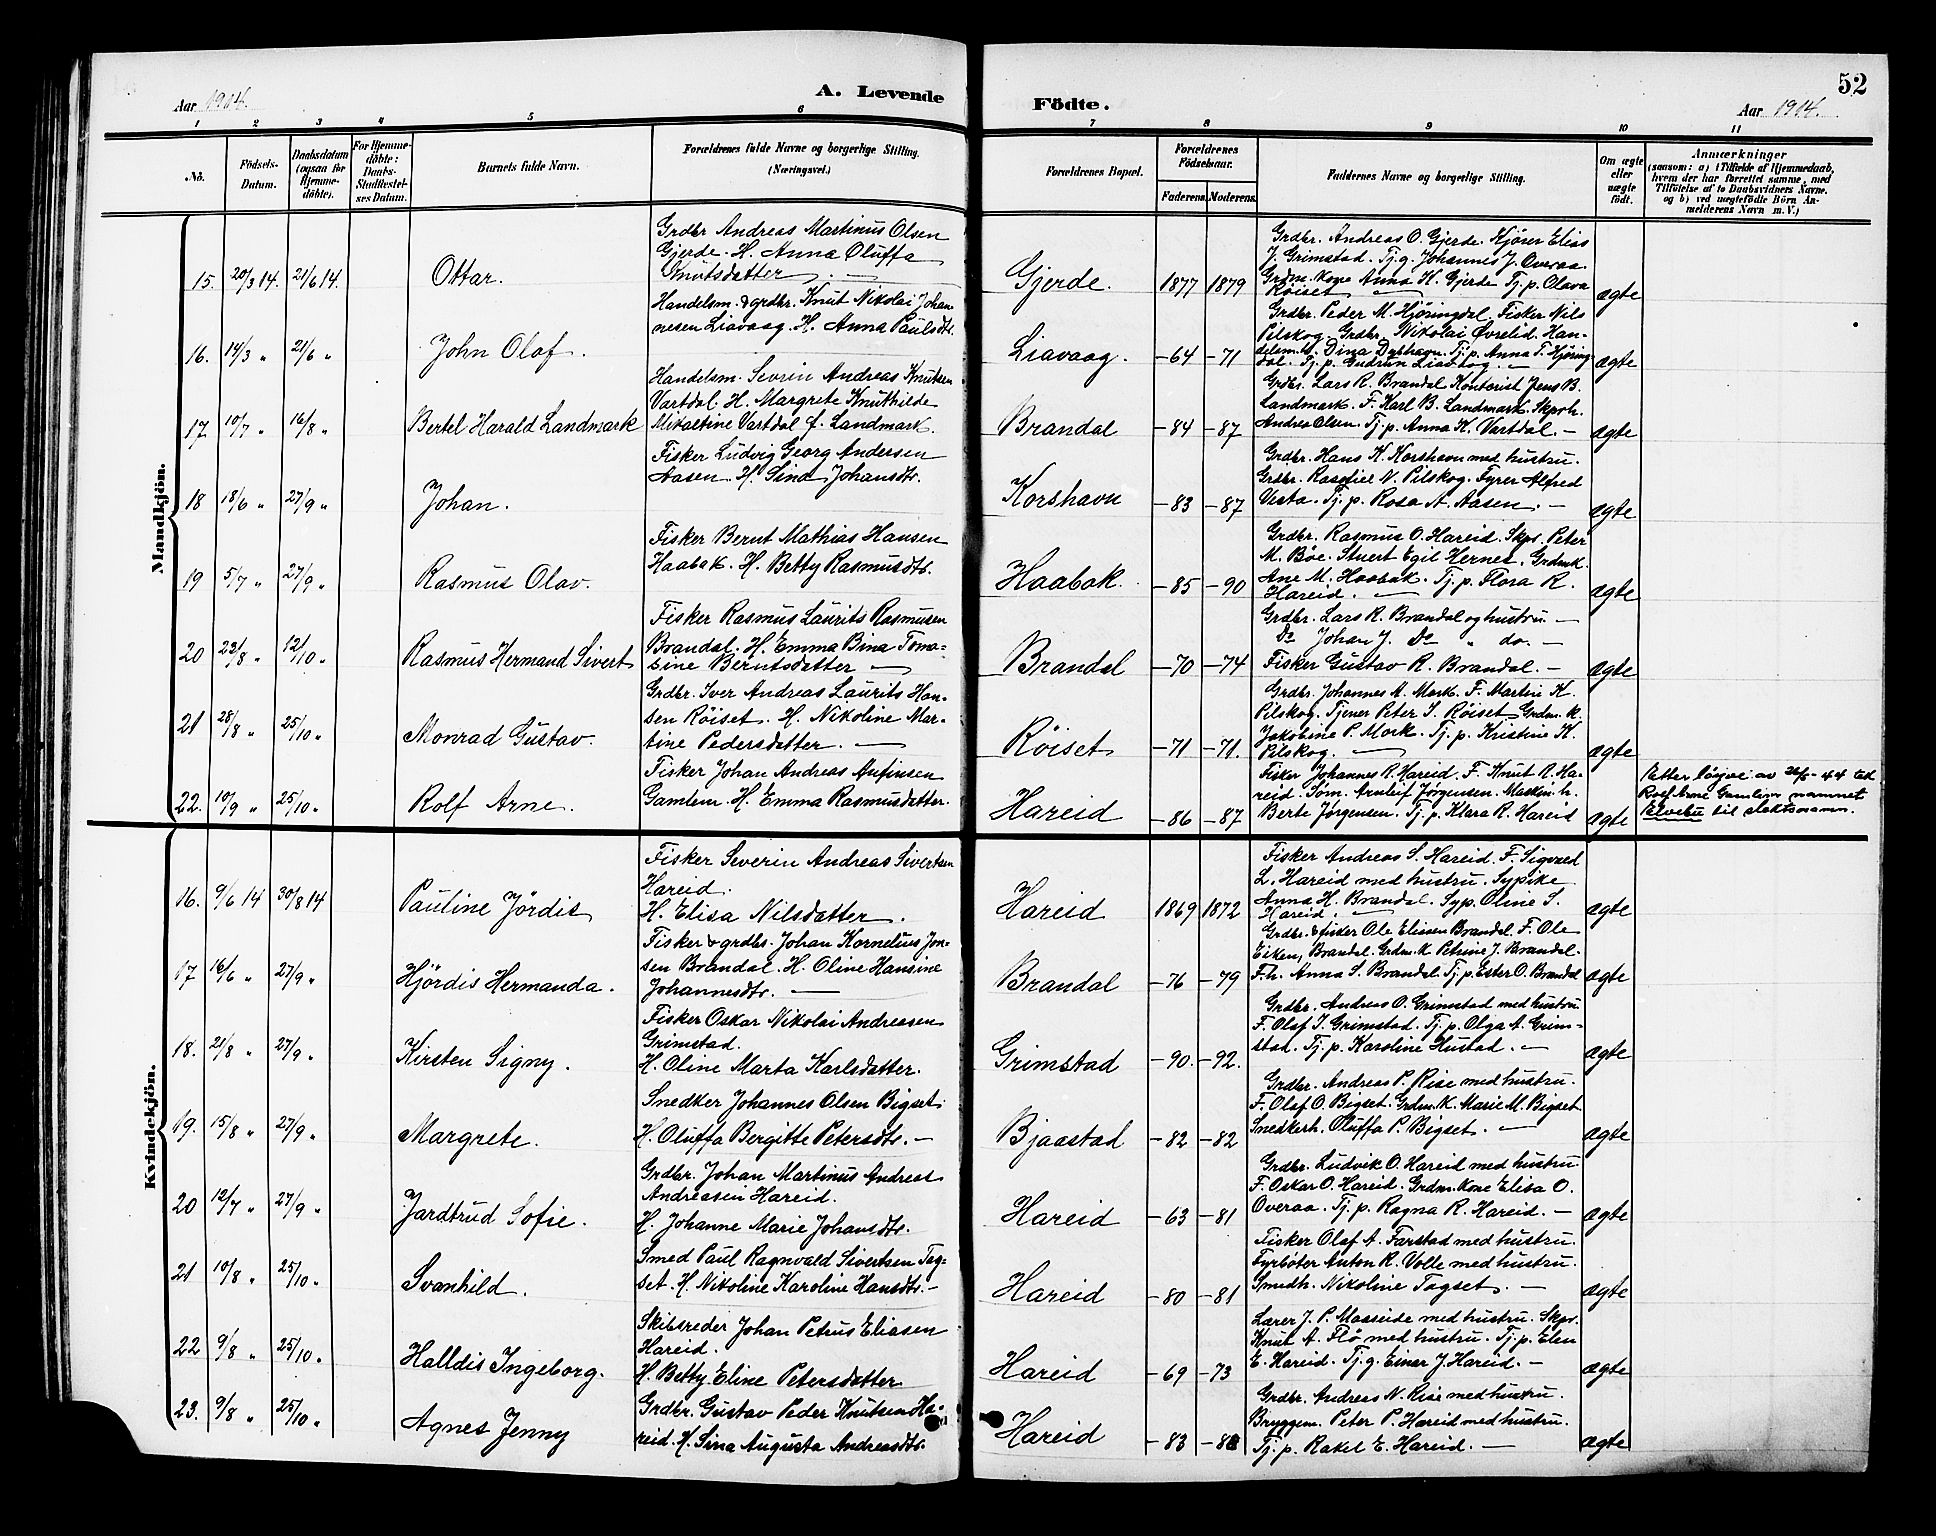 52
Aar 1914.
A. Levende
Födte.
Aar 1914.
1
2
3
4
5
6
7
8
9
10
11
No.
Födsels-
Datum.
Daabsdatum
(ogsaa for
Hjemme-
döbte).
For Hjemme-
döbte:
Daabs-
Stadfæstel-
ses Datum.
Barnets fulde Navn.
Forældrenes fulde Navne og borgerlige Stilling.
(Næringsvei.)
Forældrenes Bopæl.
Forældrenes
Födselsaar.
Faderens.
Moderens.
Faddernes Navne og borgerlige Stilling.
Om ægte
eller
uægte
født.
Anmærkninger
(saasom: a) i Tilfælde af Hjemmedaab,
hvem der har forrettet samme, med
Tilföielse af to Daabsvidners Navne.
og b) ved uægtefödte Börn An-
melderens Navn m. V.)
Mandkjön.
15. 20/3 14. 21/6 14. Ottar.
Grdbr Andreas Martinus Olsen
Gjerde. H. Anna Oluffa
Knutsdatter. —
Gjerde. 1877 1879
Grdbr. Andreas O. Gjerde. Kjører Elias
J. Grimstad. Tj.g. Johannes J. Overaa
Grdm. kone Anna K. Gjerde Tj. p. Olava
Röiset —
ægte
16. 14/3 " 21/6 " John Olaf.
Handelsm. & grdbr. Knut Nikolai Johan-
nesen Liavaag. H. Anna Paulsdtr.
Liavaag. -64 -71
Grdbr. Peder M. Hjöringdal. Fisker Nils
Pilskog. Grdbr. Nikolai Øvrelid. Han-
delsm. h. Dina Dybhavn. Tj. p. Anna T. Hjöring-
dal. Tj. p. Gudrun Liavaag. —
ægte
17. 10/7 " 16/8 " Bertel Harald Landmark
Handelsm. Sevrin Andreas Knutsen
Vartdal. H. Margrete Knuthilde
Mikaeline Vartdal f. Landmark.
Brandal -84 -87
Grdbr. Lars R. Brandal Kontorist Jens B.
Landmark. F. Karl B. Landmark. Skprh.
Andrea Olsen. Tj. p. Anna K. Vartdal. —
ægte
18 18/6 " 27/9 " Johan.
Fisker Ludvig Georg Andersen
Aasen. H. Sina Johansdtr.
Korshavn -83 -87
Grdbr. Hans K. Korshavn med hustru.
Grdbr. Rasofiel N. Pilskog. Fyrer Alfred
Vesta. Tj. p. Rosa A. Aasen. —
ægte
19 5/7 " 27/9 " Rasmus Olav.
Fisker Bernt Mathias Hansen
Haabak. H. Betty Rasmusdtr.
Haabak. -85 -90
Grdbr. Rasmus O. Hareid. Skpr. Peter
M. Böe. Stuert Egil Hernes. Grdm. k.
Ane M. Haabak. Tj. p. Flora R.
Hareid. —
ægte
20 22/8 " 12/10 " Rasmus Hermand Sivert
Fisker Rasmus Laurits Rasmusen
Brandal. H. Emma Bina Toma-
sine Berntsdatter —
Brandal -70 -74
Grdbr. Lars R. Brandal og hustru —
Do Johan J. Do " do. —
Fisker Gustav R. Brandal. —
ægte
21 28/8 " 25/10 " Monrad Gustav.
Grdbr. Iver Andreas Laurits Han-
sen Röiset. H. Nikoline Mar-
tine Pedersdatter. —
Röiset -71 -71.
Grdbr. Johannes A. Mork. F. Martin K.
Pilskog. Tjener Peter I. Röiset Grdm. k.
Jakobine P. Mork. Tj. p. Kristine K.
Pilskog. —
ægte
22. 10/9 " 25/10 " Rolf Arne.
Fisker Johan Andreas Anfinsen
Gamlem. H. Emma Rasmusdatter.
Hareid -86 -87
Fisker Johannes R. Hareid. F. Knut R. Ha-
reid. Söm. Arnleif Jørgensen. Maskin. h.
Berte Jørgensen. Tj. p. Klara R. Hareid
ægte
Etter løyve av 26/5-44 tek
Rolf Arne Gamlem namnet
Elvebu til slektsnamn.
Kvindekjön.
16. 9/6 14 30/8 14 Pauline Jördis
Fisker Severin Andreas Sivertsen
Hareid.
H. Elisa Nilsdatter.
Hareid 1869 1872
Fisker Andreas S. Hareid. F. Sigvald
L. Hareid med hustru. Sypike
Anna H. Brandal. Syp. Oline S.
Hareid. —
ægte
17 16/6 " 27/9 " Hjördis Hermanda.
Fisker & grdbr. Johan Kornelius Jon-
sen Brandal. H. Oline Hansine
Johannesdtr. —
Brandal -76 -79
Grdbr. & fisker Ole Eliasen Brandal F. Ole
Eiken, Brandal. Grdm. k. Petrine J. Brandal.
F.h. Anna S. Brandal. Tj. p. Ester O. Brandal
ægte
18. 21/8 " 27/9 " Kirsten Signy.
Fisker Oskar Nikolai Andreasen
Grimstad.
H. Oline Marta Karlsdatter.
Grimstad -90. -92.
Grdbr. Andreas O. Grimstad med hustru
F. Olaf I. Grimstad. Tj. p. Olga A. Grim-
stad. Tj. p. Karoline Hustad. —
ægte
19. 15/8 " 27/9 " Margrete.
Snedker Johannes Olsen Bigset.
H. Oluffa Bergitte Petersdtr. —
Bjaastad -82 -82
Grdbr. Andreas P. Rise med hustru.
F. Olaf O. Bigset. Grdm. K. Marie M. Bigset
Snedkerh. Oluffa P. Bigset. —
ægte
20 12/7 " 27/9 " Jardtrud Sofie.
Grdbr. Johan Martinus Andreas
Andreasen Hareid.
H. Johanne Marie Johansdtr.
Hareid -63 -81
Grdbr. Ludvik O. Hareid med hustru
F. Oskar O. Hareid. Grdm. kone Elisa O.
Overaa. Tj. p. Ragna R. Hareid. —
ægte
21 10/8 " 25/10 " Svanhild.
Smed Paul Ragnvald Sivertsen Tag-
set. H. Nikoline Karoline Hansdtr. —
Hareid -80 -81
Fisker Olaf A. Farstad med hustru.
Fyrböter Anton R. Volle med hustru.
Smedh. Nikoline Tagset. —
ægte
22 9/8 " 25/10 " Halldis Ingeborg.
Skibsreder Johan Petrus Eliasen
Hareid.
H. Betty Eline Petersdatter
Hareid -69 -73
Lærer J. P. Masseide med hustru. Skpr.
Knut A. Flö med hustru. Tj. p. Elen
E. Hareid. Tj. g. Einar J. Hareid. —
ægte
23. 9/8 " 25/10 " Agnes Jenny
Grdbr. Gustav Peder Knutsen Ha-
reid. H. Sina Augusta Andreasdtr.
Hareid -83
Grdbr. Andreas N. Rise med hustru.
Bryggem. Peter P. Hareid med hustru.
Tj. p. Rakel E. Hareid. —
ægte